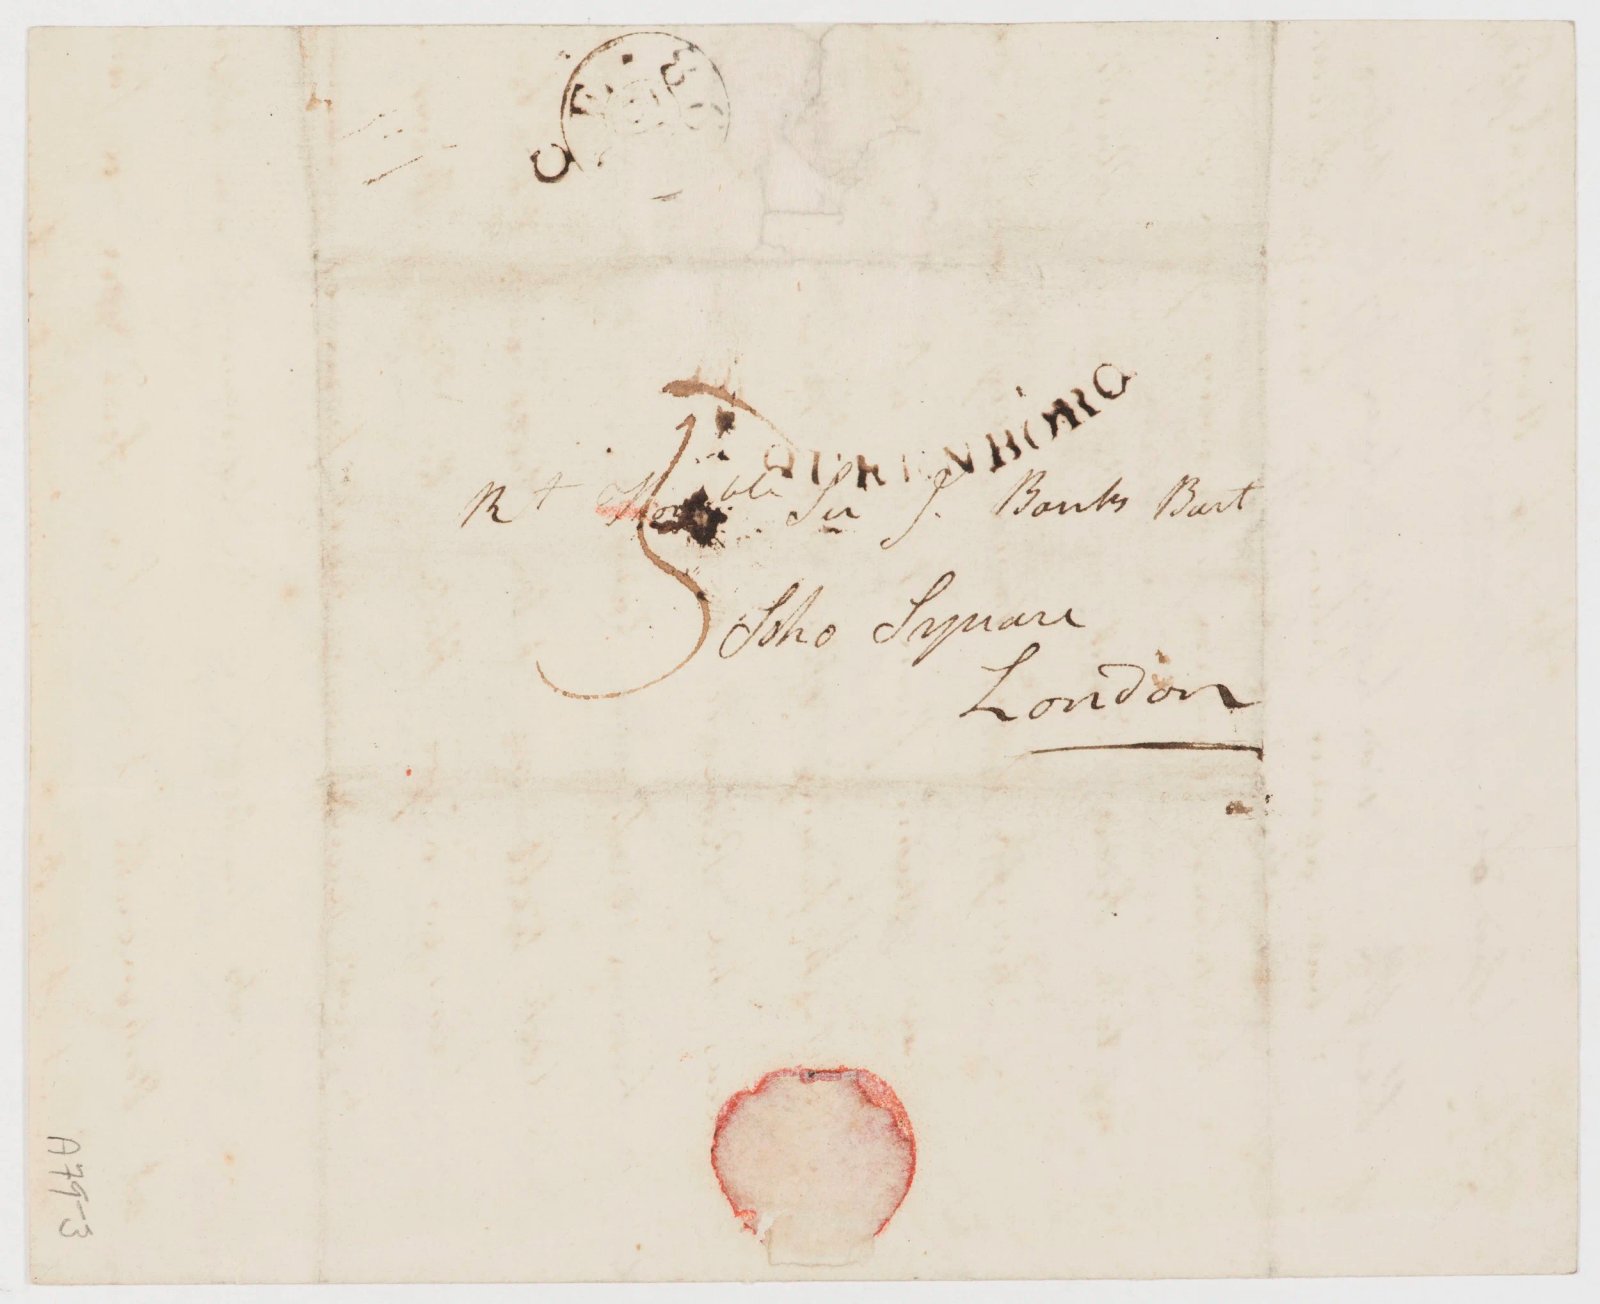 QUEENBORO
5
Rt Honble Sir J. Banks Bart
Soho Square
London
A79-3